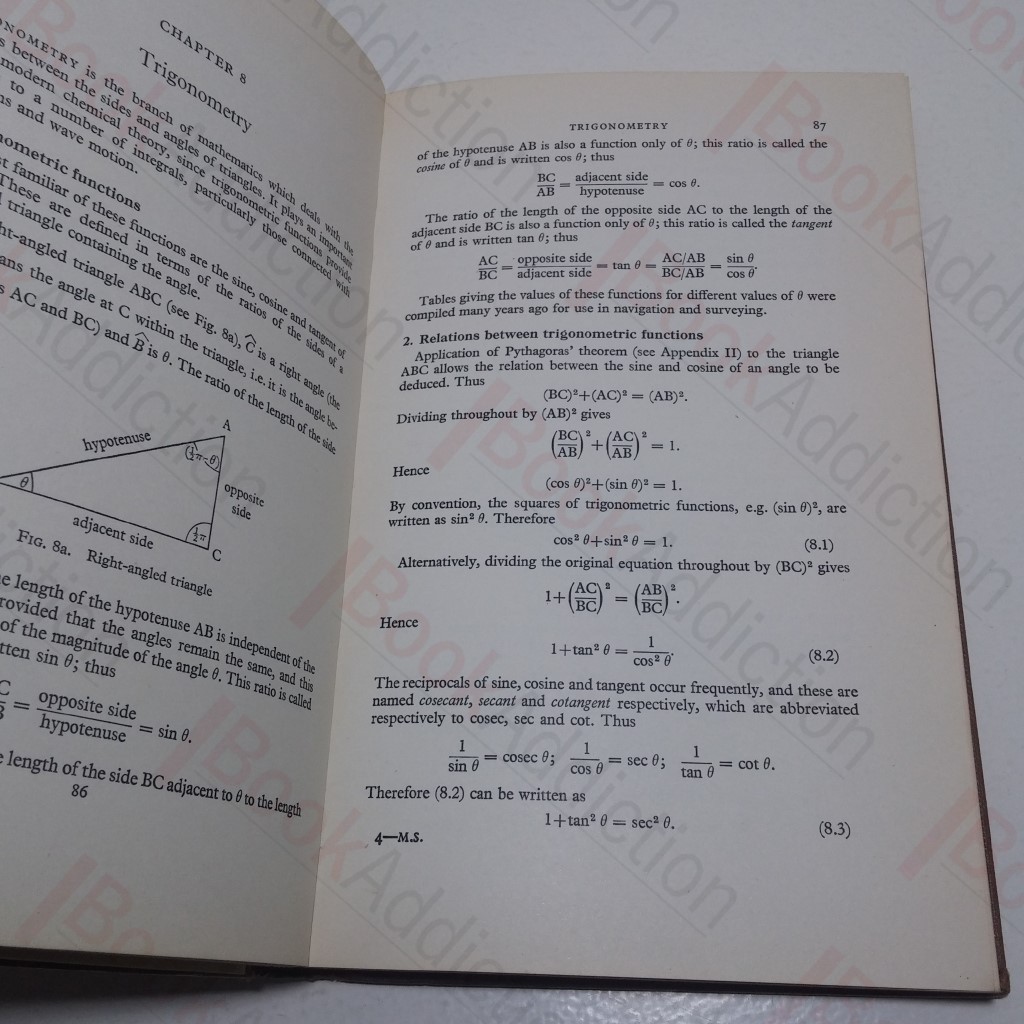 CHAPTER 8
Trigonometry
ONOMETRY is the branch of mathematics which deals with the
s between the sides and angles of triangles. It plays an important
modern chemical theory, since trigonometric functions provide
to a number of integrals, particularly those connected with
ns and wave motion.
nometric functions
st familiar of these functions are the sine, cosine and tangent of
These are defined in terms of the ratios of the sides of a
triangle containing the angle.
ht-angled triangle ABC (see Fig. 8a), Ĉ is a right angle (the
ans the angle at C within the triangle, i.e. it is the angle be-
s AC and BC) and B̂ is θ. The ratio of the length of the side
A
hypotenuse
(½π−θ)
θ
opposite
side
adjacent side
½π
C
FIG. 8a. Right-angled triangle
e length of the hypotenuse AB is independent of the
rovided that the angles remain the same, and this
of the magnitude of the angle θ. This ratio is called
tten sin θ; thus
C/B = opposite side/hypotenuse = sin θ.
e length of the side BC adjacent to θ to the length
86
TRIGONOMETRY 87
of the hypotenuse AB is also a function only of θ; this ratio is called the
cosine of θ and is written cos θ; thus
BC/AB = adjacent side/hypotenuse = cos θ.
The ratio of the length of the opposite side AC to the length of the
adjacent side BC is also a function only of θ; this ratio is called the tangent
of θ and is written tan θ; thus
AC/BC = opposite side/adjacent side = tan θ = AC/AB/BC/AB = sin θ/cos θ.
Tables giving the values of these functions for different values of θ were
compiled many years ago for use in navigation and surveying.
2. Relations between trigonometric functions
Application of Pythagoras' theorem (see Appendix II) to the triangle
ABC allows the relation between the sine and cosine of an angle to be
deduced. Thus
(BC)²+(AC)² = (AB)².
Dividing throughout by (AB)² gives
(BC/AB)²+(AC/AB)² = 1.
Hence
(cos θ)²+(sin θ)² = 1.
By convention, the squares of trigonometric functions, e.g. (sin θ)², are
written as sin² θ. Therefore
cos² θ+sin² θ = 1. (8.1)
Alternatively, dividing the original equation throughout by (BC)² gives
1+(AC/BC)² = (AB/BC)².
Hence
1+tan² θ = 1/cos² θ. (8.2)
The reciprocals of sine, cosine and tangent occur frequently, and these are
named cosecant, secant and cotangent respectively, which are abbreviated
respectively to cosec, sec and cot. Thus
1/sin θ = cosec θ; 1/cos θ = sec θ; 1/tan θ = cot θ.
Therefore (8.2) can be written as
1+tan² θ = sec² θ. (8.3)
4—M.S.